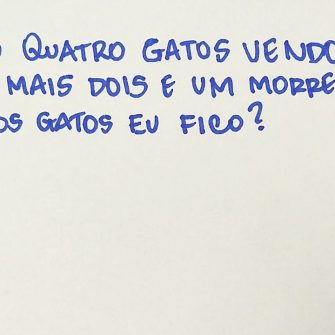 QUATRO GATOS VENDO
MAIS DOIS E UM MORRE
OS GATOS EU FICO?